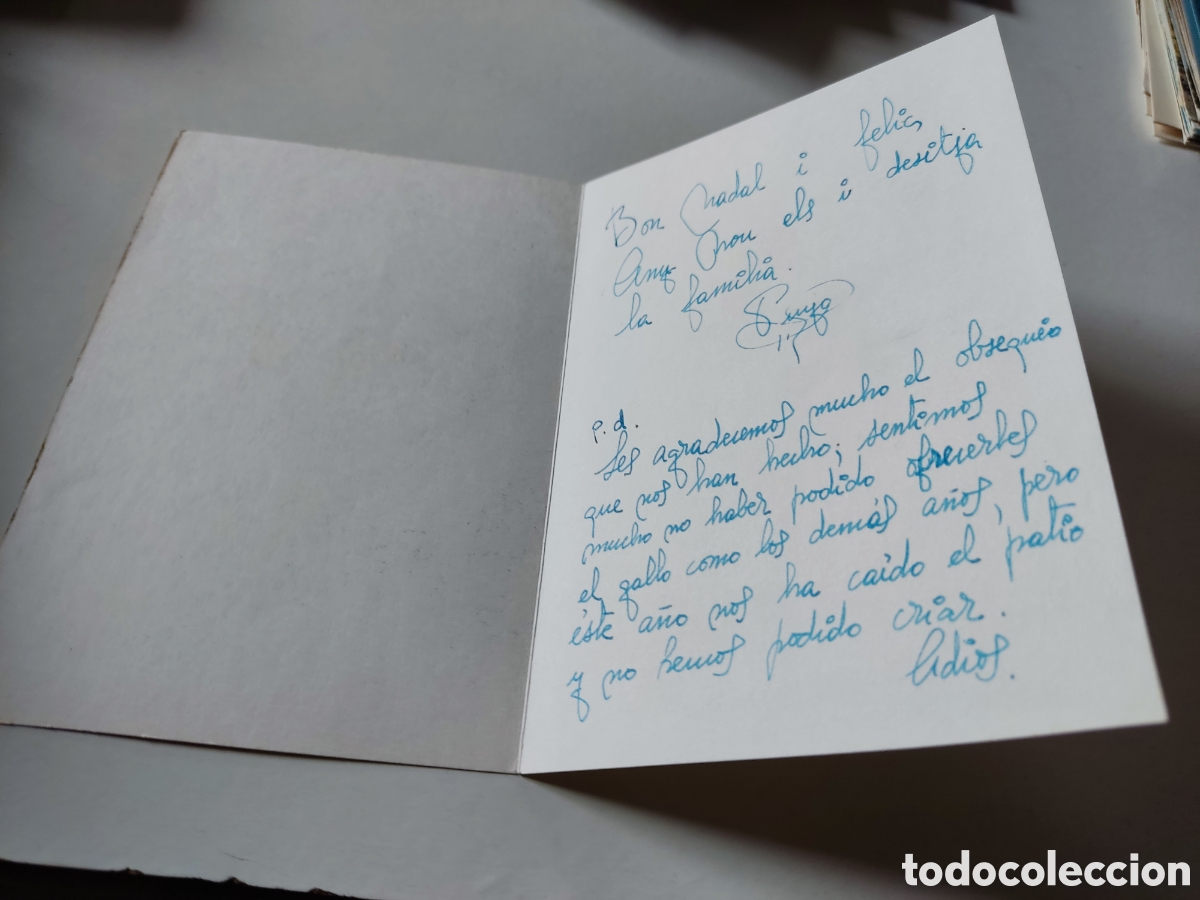 Bon Nadal i feliç
Any Nou els i desitja
la familia.
p.d.
Les agradecemos mucho el obsequio
que nos han hecho; sentimos
mucho no haber podido ofrecerles
el gallo como los demás años, pero
éste año nos ha caído el patio
y no hemos podido criar.
Adios.
todocoleccion